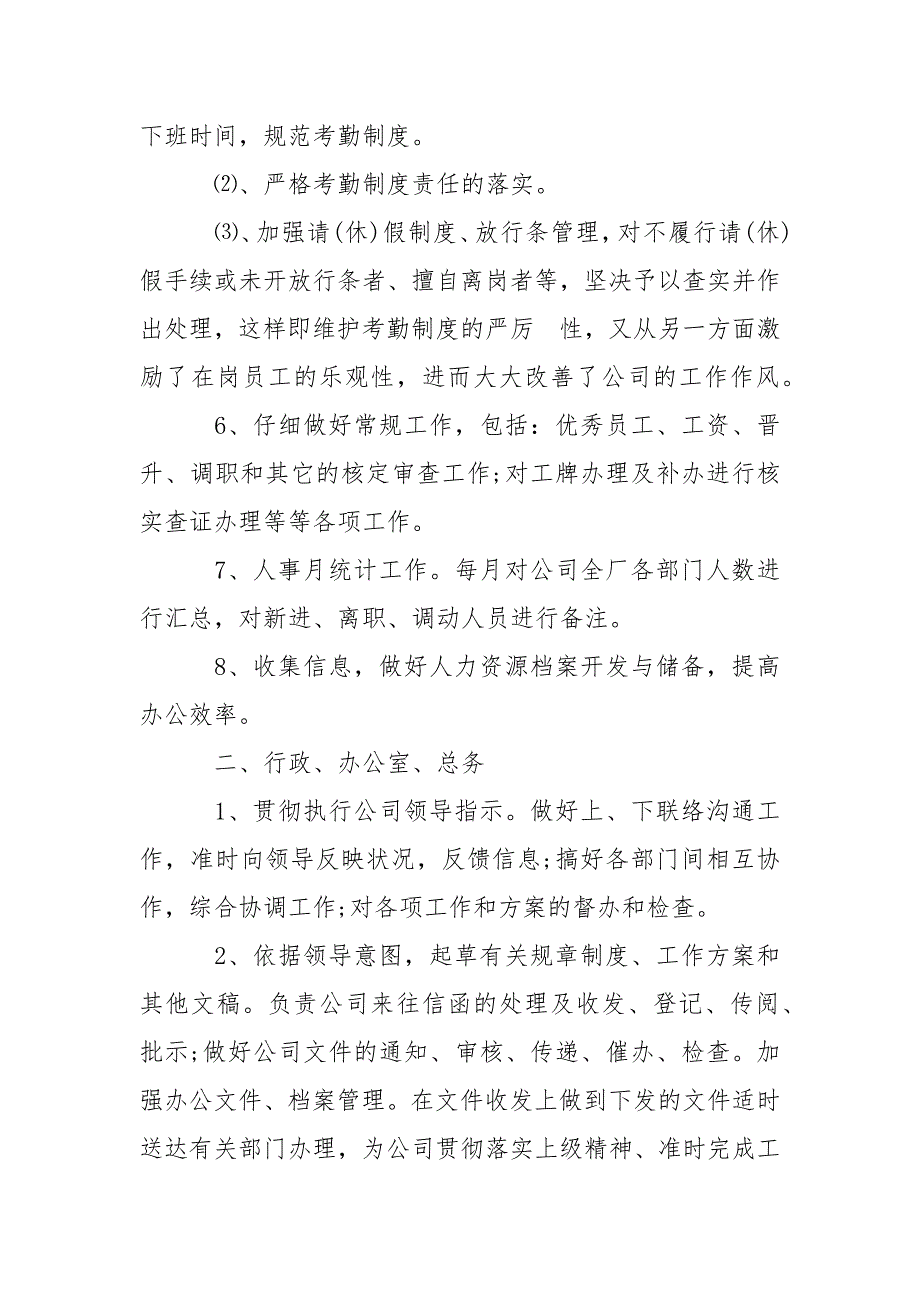 下班时间，规范考勤制度。
⑵、严格考勤制度责任的落实。
⑶、加强请(休)假制度、放行条管理，对不履行请(休)
假手续或未开放行条者、擅自离岗者等，坚决予以查实并作
出处理，这样即维护考勤制度的严厉　性，又从另一方面激
励了在岗员工的乐观性，进而大大改善了公司的工作作风。
6、仔细做好常规工作，包括：优秀员工、工资、晋
升、调职和其它的核定审查工作;对工牌办理及补办进行核
实查证办理等等各项工作。
7、人事月统计工作。每月对公司全厂各部门人数进
行汇总，对新进、离职、调动人员进行备注。
8、收集信息，做好人力资源档案开发与储备，提高
办公效率。
二、行政、办公室、总务
1、贯彻执行公司领导指示。做好上、下联络沟通工
作，准时向领导反映状况，反馈信息;搞好各部门间相互协
作，综合协调工作;对各项工作和方案的督办和检查。
2、依据领导意图，起草有关规章制度、工作方案和
其他文稿。负责公司来往信函的处理及收发、登记、传阅、
批示;做好公司文件的通知、审核、传递、催办、检查。加
强办公文件、档案管理。在文件收发上做到下发的文件适时
送达有关部门办理，为公司贯彻落实上级精神、准时完成工